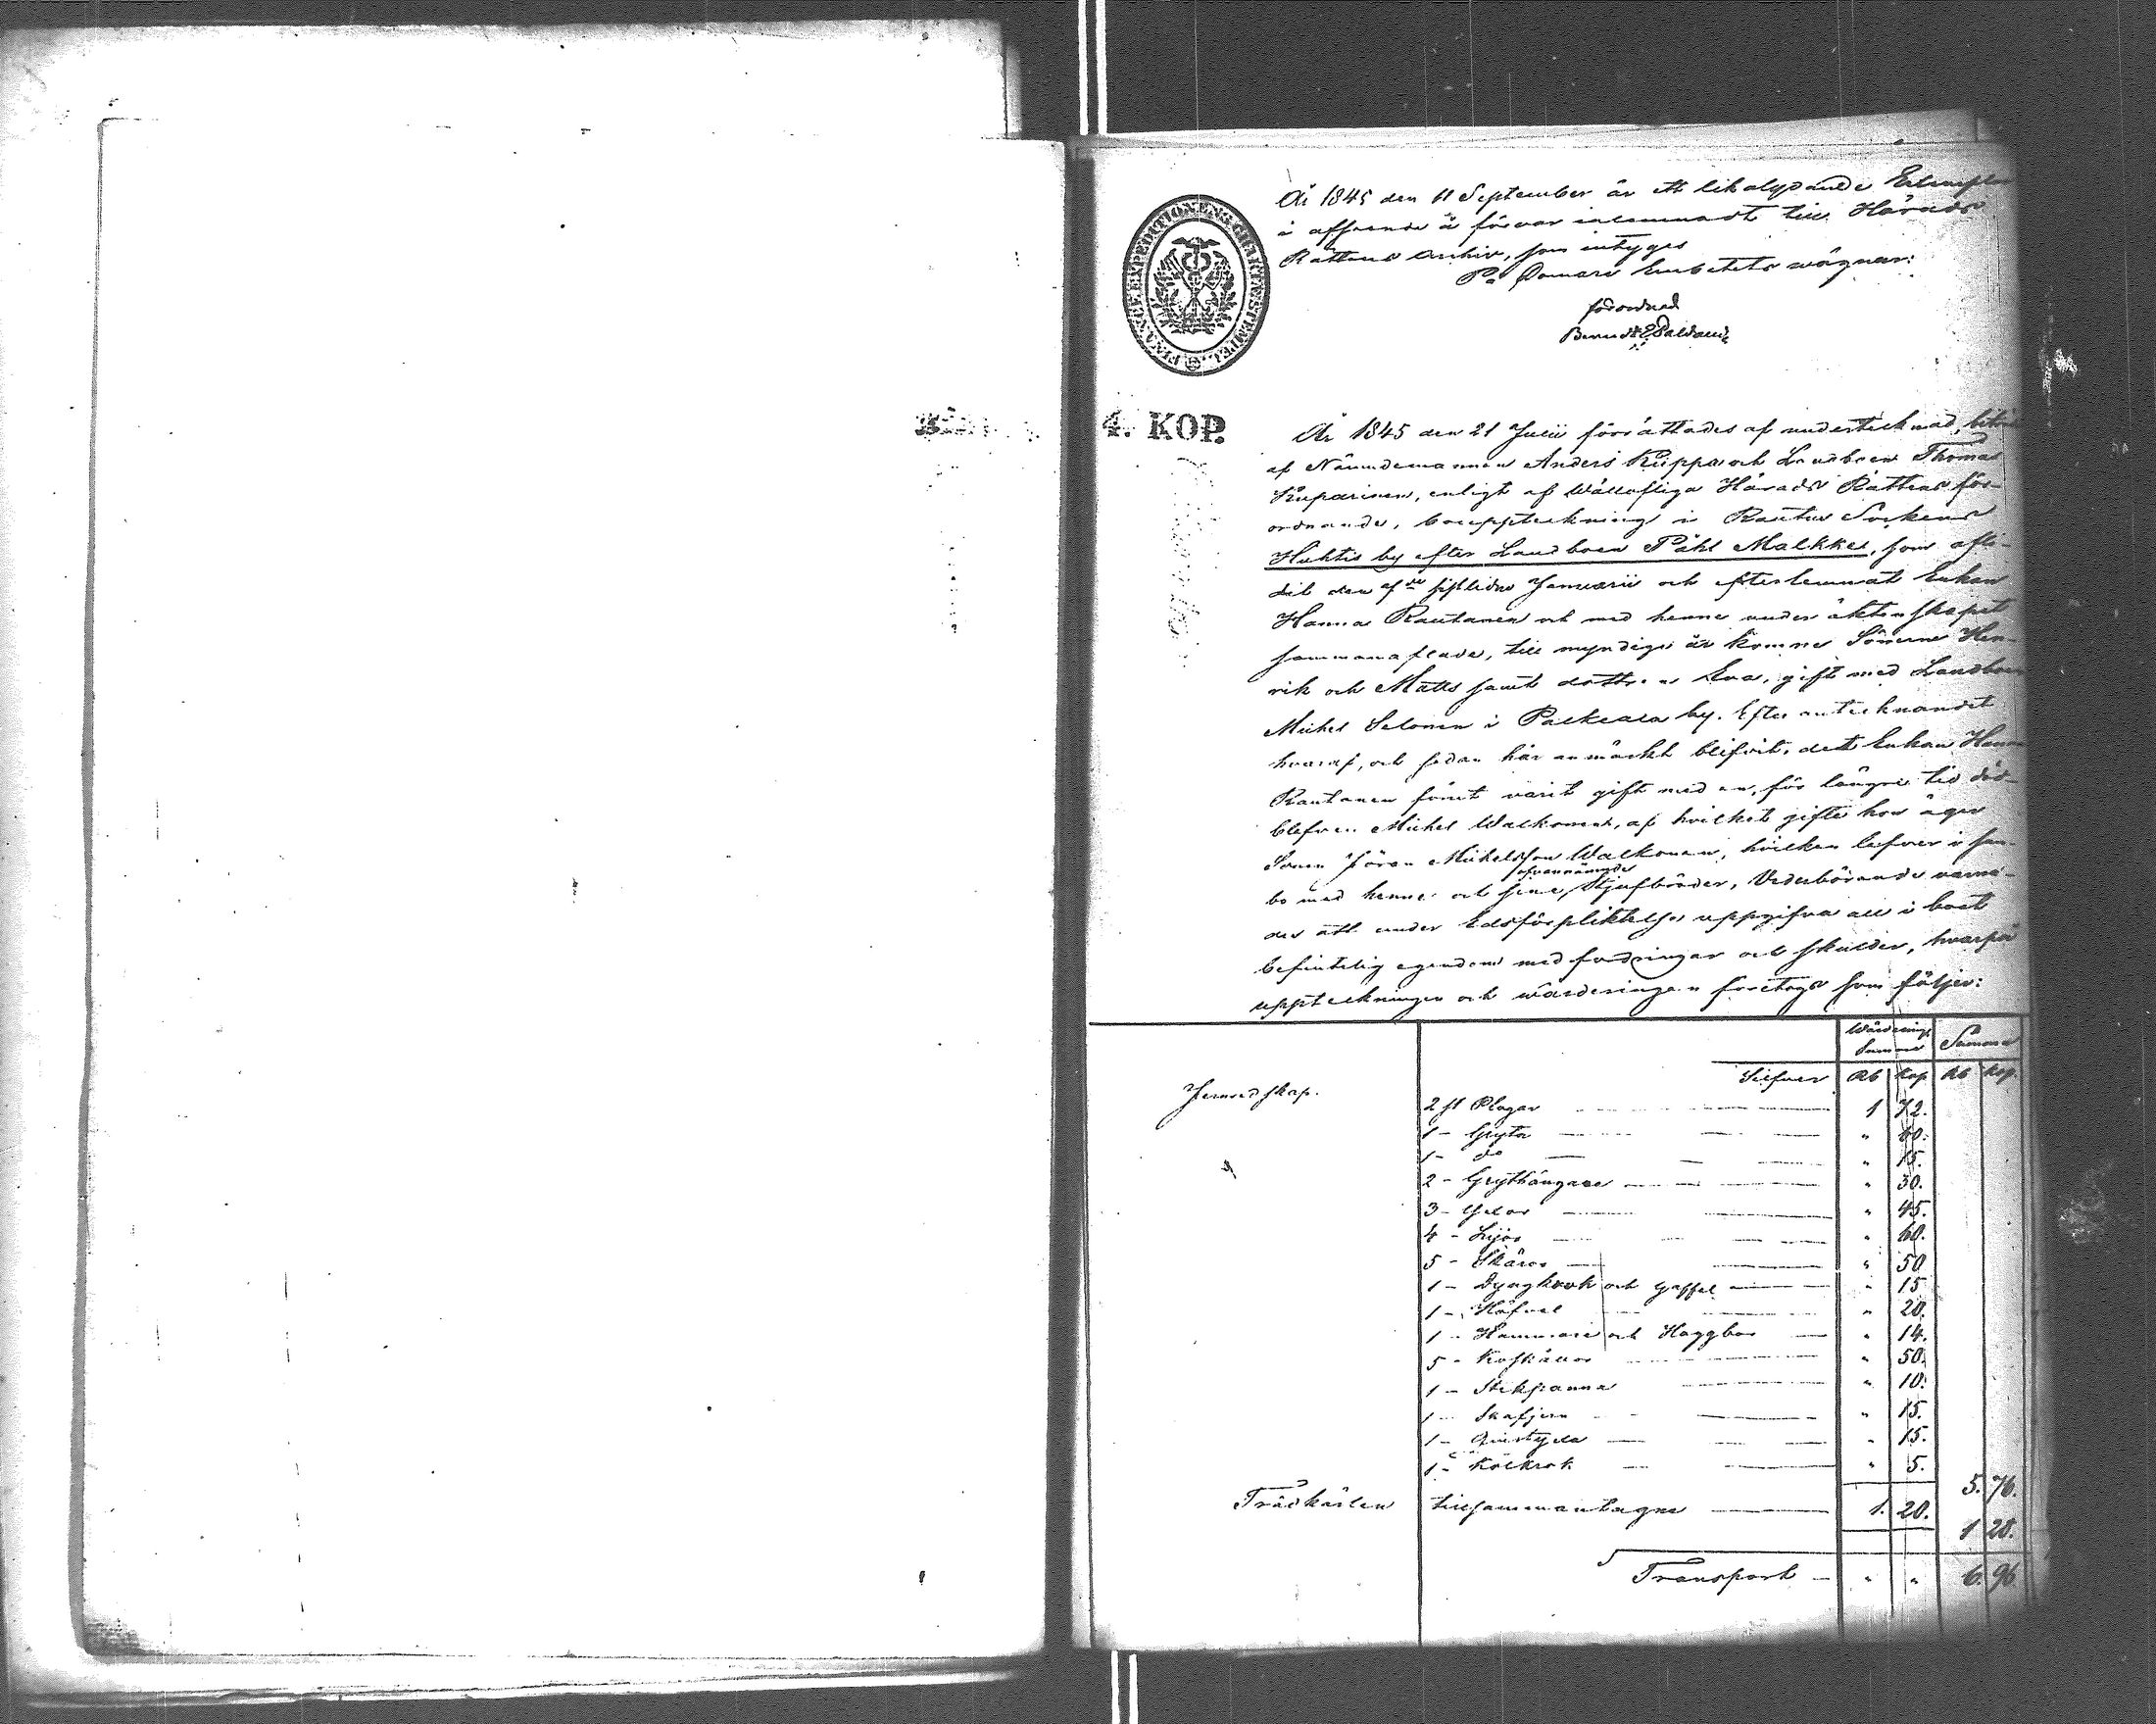 År 1845 den 11 September är ett likalydande Exemplar
i afseende å förvar inlemnadt till Härads
Rättens Archiv, som intygas
På Domare Embetets vägnar:
förordnad
FINANCE EXPEDITIONENS CHARTÆ STEMPEL
4. KOP.
År 1845 den 21 Julii förrättades af undertecknad, biträdd
af Nämndemannen Anders Kiippa och Landboen Thomas
Kuparinen, enligt af Wällofliga Härads Rättens för-
ordnande, bouppteckning i Rautus Sockens
Huhtis by efter Landboen Påhl Malkke, som afli-
dit den sistlidne Januarii och efterlemnat Enkan
Hanna Rautanen och med henne under äktenskapet
sammanaflade, till myndiga år komne Sönerne Hen-
rik och Matts samt dottren Eva, gift med Landboen
Michel Selonen i Palkeala by. Efter antecknandet
hvaraf, och sedan här anmärkt blifvit, det Enkan Hanna
Rautanen förut varit gift med en, för längre tid död-
blefven Michel Walkonen, af hvilket gifte hon äger
Sonen Jöran Michelsson Walkonen, hvilken lefver i sam-
ofvannämnde
bo med henne och sine Stjufbröder, Vederbörande varna-
des att under Edsförpliktelse uppgifva all i boet
befintelig egendom med fordringar och skulder, hvarpå
uppteckningen och värderingen företogs som följer:
Wärderings Summa Summa
Silfver Rb Kop Rb Kop.
Jernredskap. 2 st Plogar 1 72.
1 - Gryta " 60.
1 - do " 15.
2 - Grythängare " 30.
3 - Yxor " 45.
4 - Lijor " 60.
5 - Skäror " 50
1 - Dyngkrok och gaffel " 15
1 - Håfvel " 20.
1 - Hammare och Huggbor " 14.
5 - Koskällor " 50.
1 - Stekpanna " 10.
1 - Skafjern " 15.
1 - " 15.
1 - Kolkrok " 5.
5. 76.
Trädkärlen tillsammantagne 1. 20.
1 20.
Transport - " " 6. 96